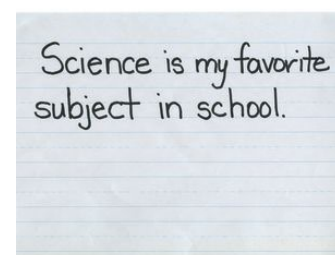 Science is my favorite
subject in school.